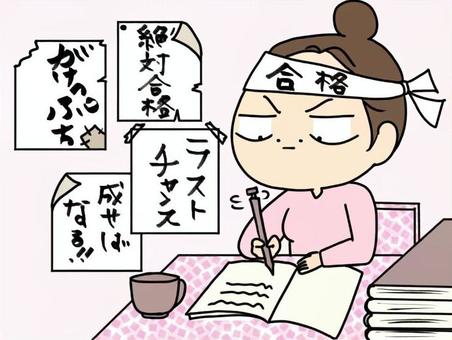 がけっぷち
絶対合格
ラスト
チャンス
成せば
なる!!
合格